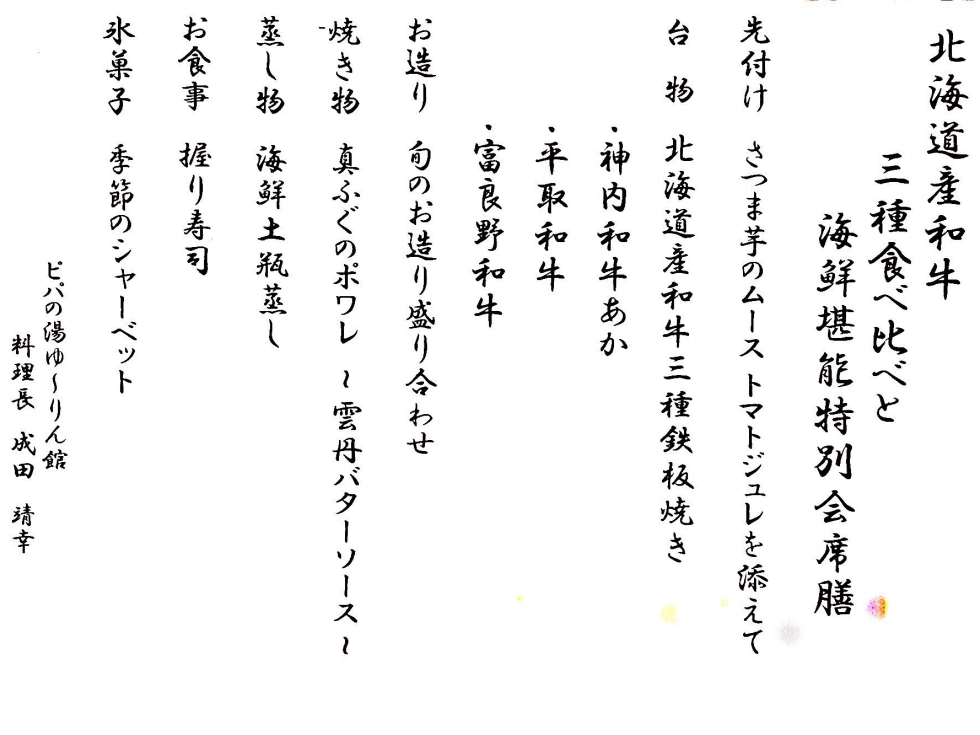 北海道産和牛
三種食べ比べと
海鮮堪能特別会席膳
先付け　さつま芋のムース トマトジュレを添えて
台　物　北海道産和牛三種鉄板焼き
・神内和牛あか
・平取和牛
・富良野和牛
お造り　旬のお造り盛り合わせ
焼き物　真ふぐのポワレ　～雲丹バターソース～
蒸し物　海鮮土瓶蒸し
お食事　握り寿司
氷菓子　季節のシャーベット
ピパの湯ゆ～りん館
料理長　成田　靖幸